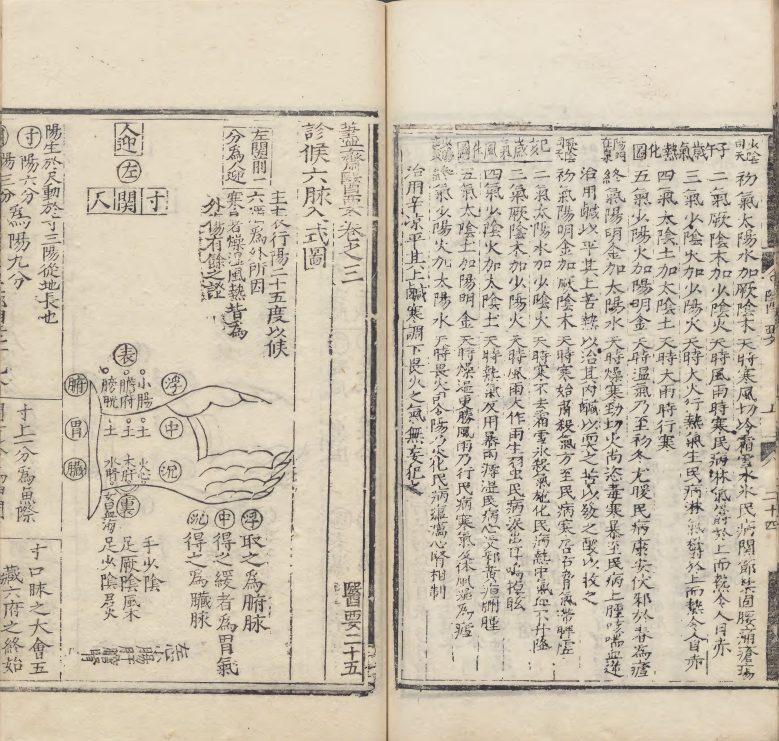 少陰司天
子午歲氣熱化圖
陽明在泉
初氣太陽水加厥陰木 天時寒風切冷霜雪水氷 民病關節禁固腰痛瘡瘍
二氣厥陰木加少陰火 天時風雨時寒 民病淋氣欝於上而熱令人目赤
三氣少陰火加少陽火 天時大火行熱氣生 民病淋氣欝於上而熱令人目赤
四氣太陰土加太陰土 天時大雨時行寒
五氣少陽火加陽明金 天時溫氣乃至初冬尤暖 民病康安伏邪於春為瘧
終氣陽明金加太陽水 天時燥寒勁切火尚恣毒寒暴至 民病上腫咳喘血逆
治用鹹以平其上苦熱以治其內鹹以耎之苦以發之酸以收之
厥陰司天
巳亥歲氣風化圖
初氣陽明金加厥陰木 天時寒始肅殺氣方至 民病寒居右脅氣滯脾虛
二氣太陽水加少陰火 天時寒不去霜雪氷殺氣施化 民病熱中氣血不升降
三氣厥陰木加少陽火 天時風雨大作雨生羽虫 民病淚出耳鳴掉眩
四氣少陰火加太陰土 天時熱氣反用暴雨溽濕 民病心受邪黃疸胕腫
五氣太陰土加陽明金 天時燥濕更勝風雨乃行 民病寒氣及体風濕為瘧
終氣少陽火加太陽水 天時畏火司令陽乃火化 民病瘟癘心腎相制
治用辛凉平其上鹹寒調下畏火之氣無妄犯之
二十四
蓋齋醫要卷之三
診候六脉入式圖
主土衣行陽二十五度以候
六淫為外所因
寒暑燥濕風熱昔為
外傷有餘之證
左關前一
分為人迎
人迎
左
寸關尺
表
小腸
膽府
膀胱
火心
木肝
水腎
裏
腑
胃
臟
浮
中
沉
浮取之為腑脉
中得之緩者為胃氣
沉得之為臟脉
手少陰
足厥陰風木
足少陰君火
陽生於尺動於寸三陽從地長也
寸陽六分為陽九分
陽三分
寸上一分為魚際
寸口脉之大會五
藏六府之終始
醫要二十五